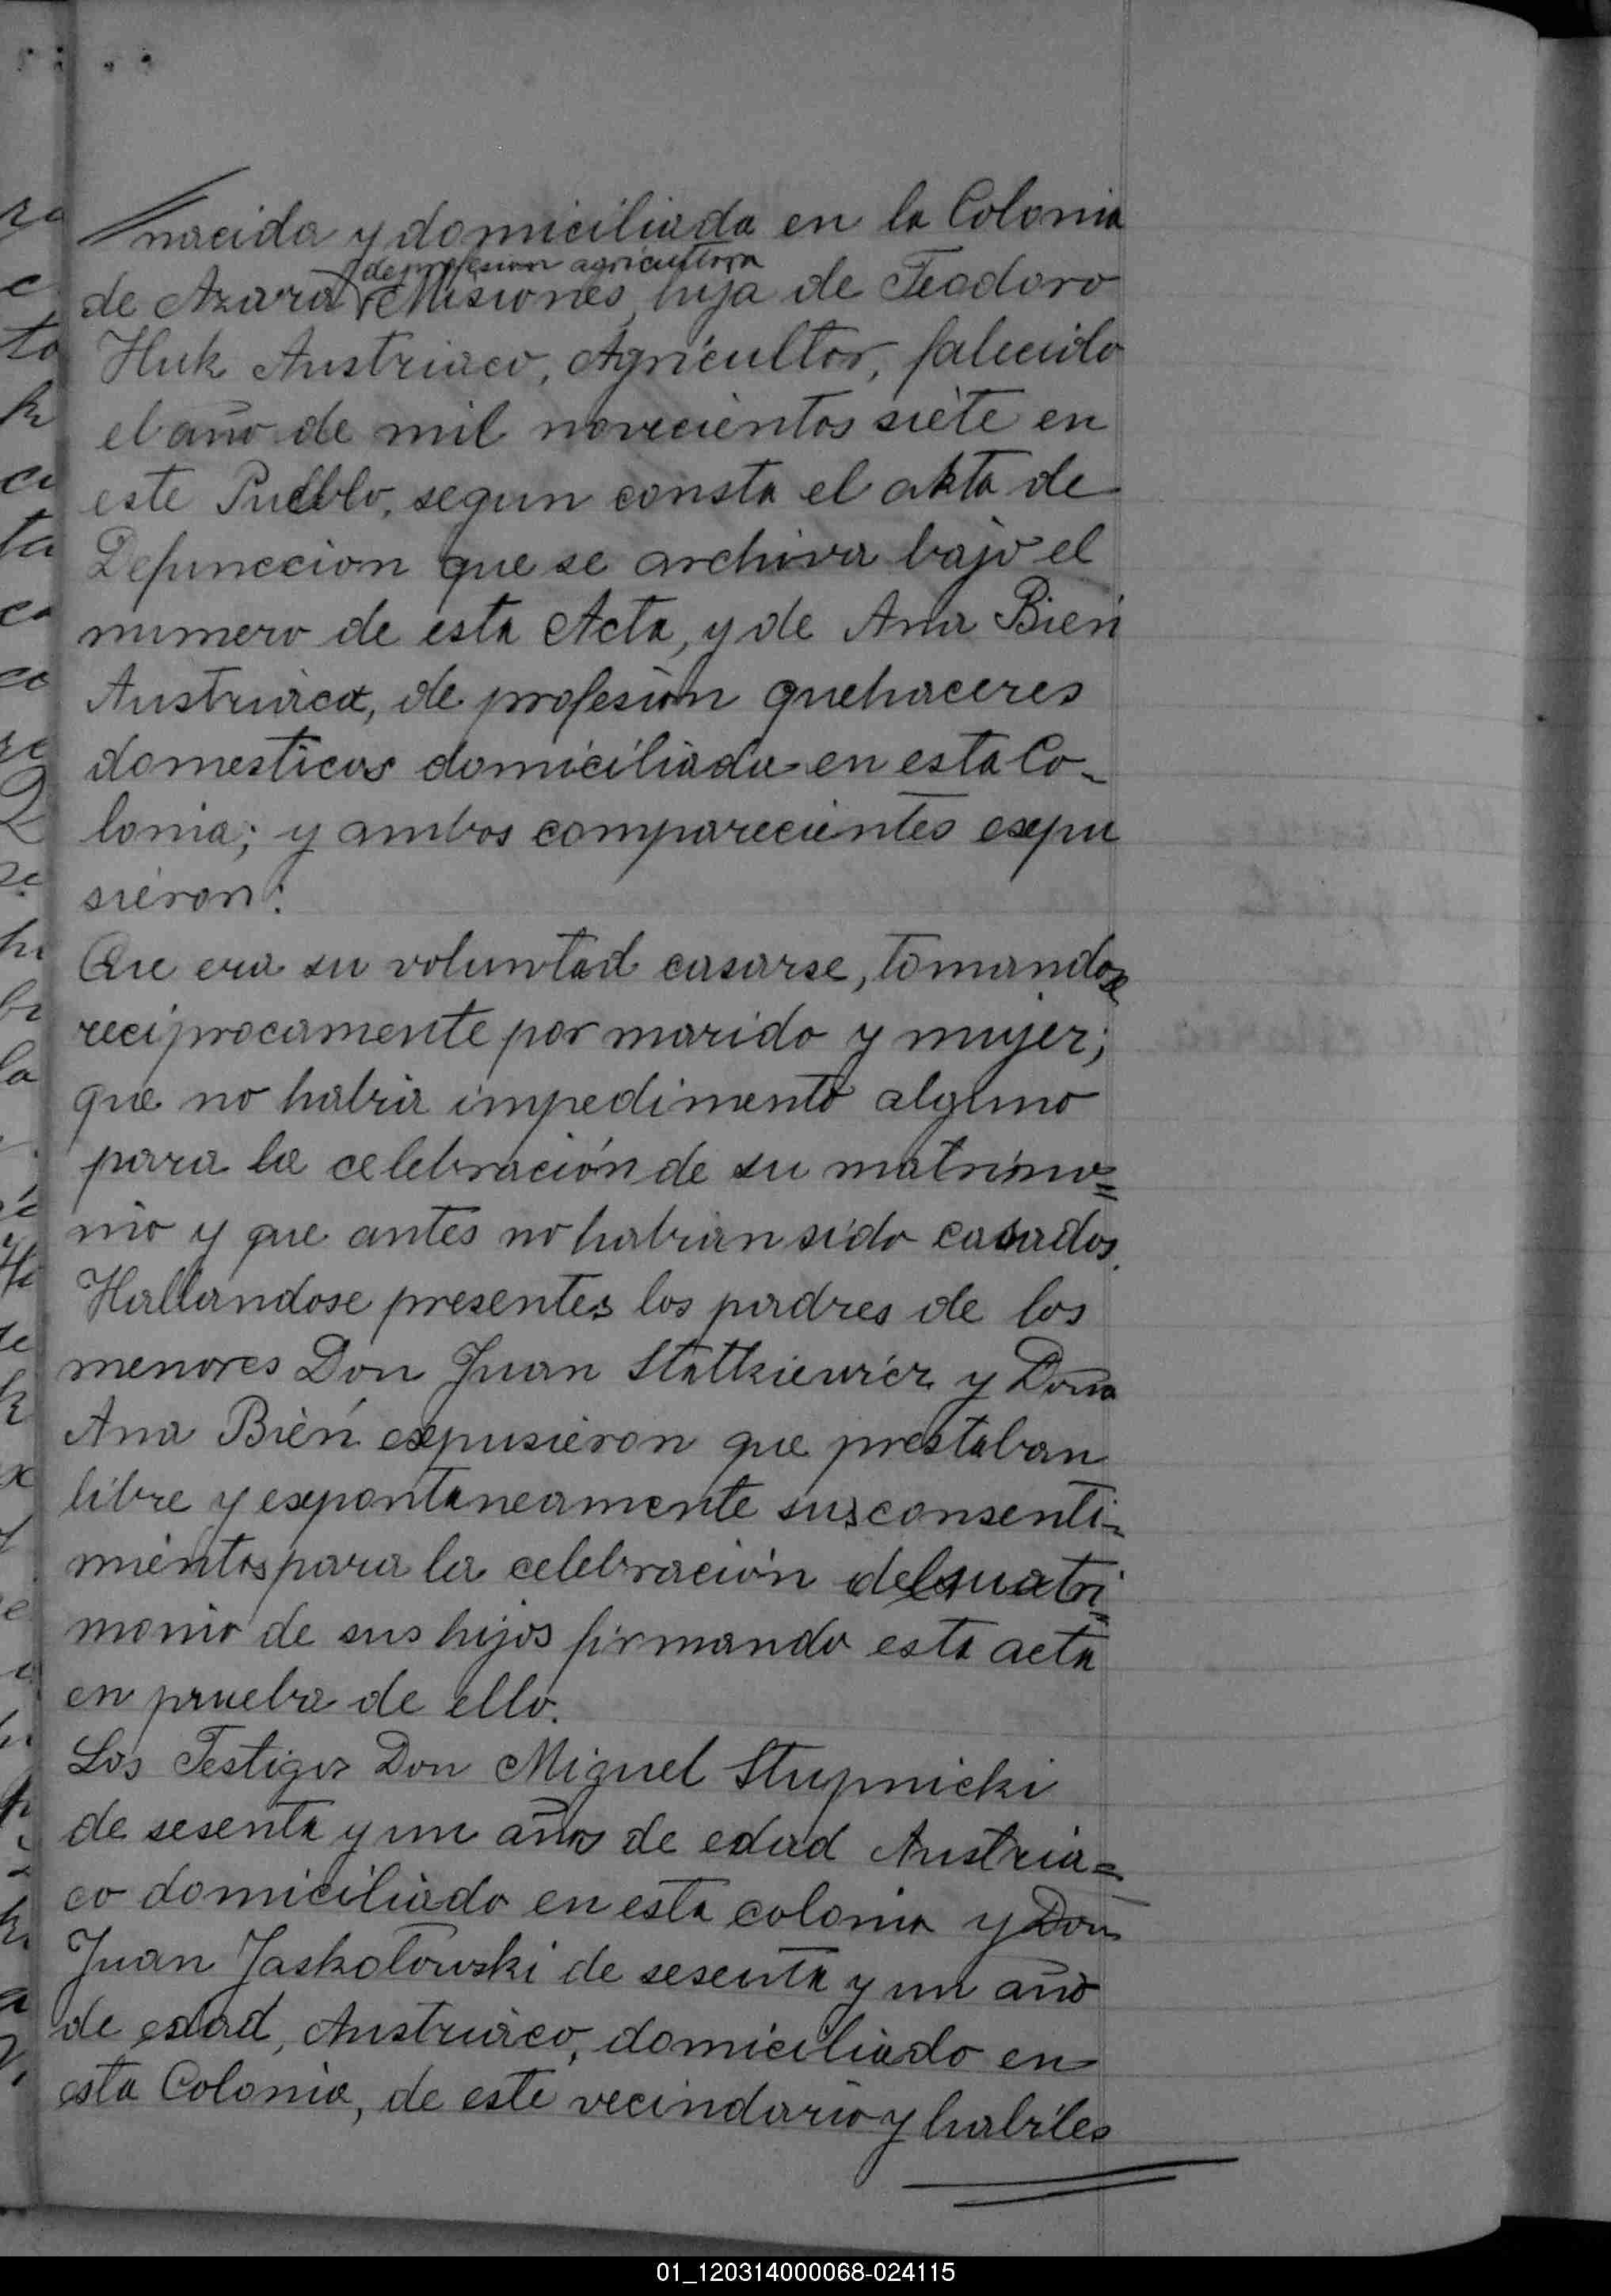 nacida y domiciliada en la Colonia
de profesion agricultora
de Azara Misiones, hija de Teodoro
Huk Austriaco, Agricultor, falecido
el año de mil novecientos siete en
este Pueblo, segun consta el akta de
Defunccion que se archiva bajo el
numero de esta Acta, y de Ana Bień
Austriaca, de profesion quehaceres
domesticos domiciliada en esta Co-
lonia; y ambos comparecientes expu
sieron:
Que era su voluntad casarse, tomandose
reciprocamente por marido y mujer;
que no habia impedimento alguno
para la celebración de su matrimo=
nio y que antes no habian sido casados.
Hallandose presentes los padres de los
menores Don Juan Statkiewicz y Doña
Ana Bień expusieron que prestaban
libre y expontaneamente sus consenti-
mientos para la celebración del matri=
monio de sus hijos firmando esta acta
en prueba de ello.
Los Testigos Don Miguel Stupnicki
de sesenta y un años de edad Austria=
co domiciliado en esta colonia y Don
Juan Jaskołowski de sesenta y un año
de edad, Austriaco, domiciliado en
esta Colonia, de este vecindario y habiles
01_120314000068-024115